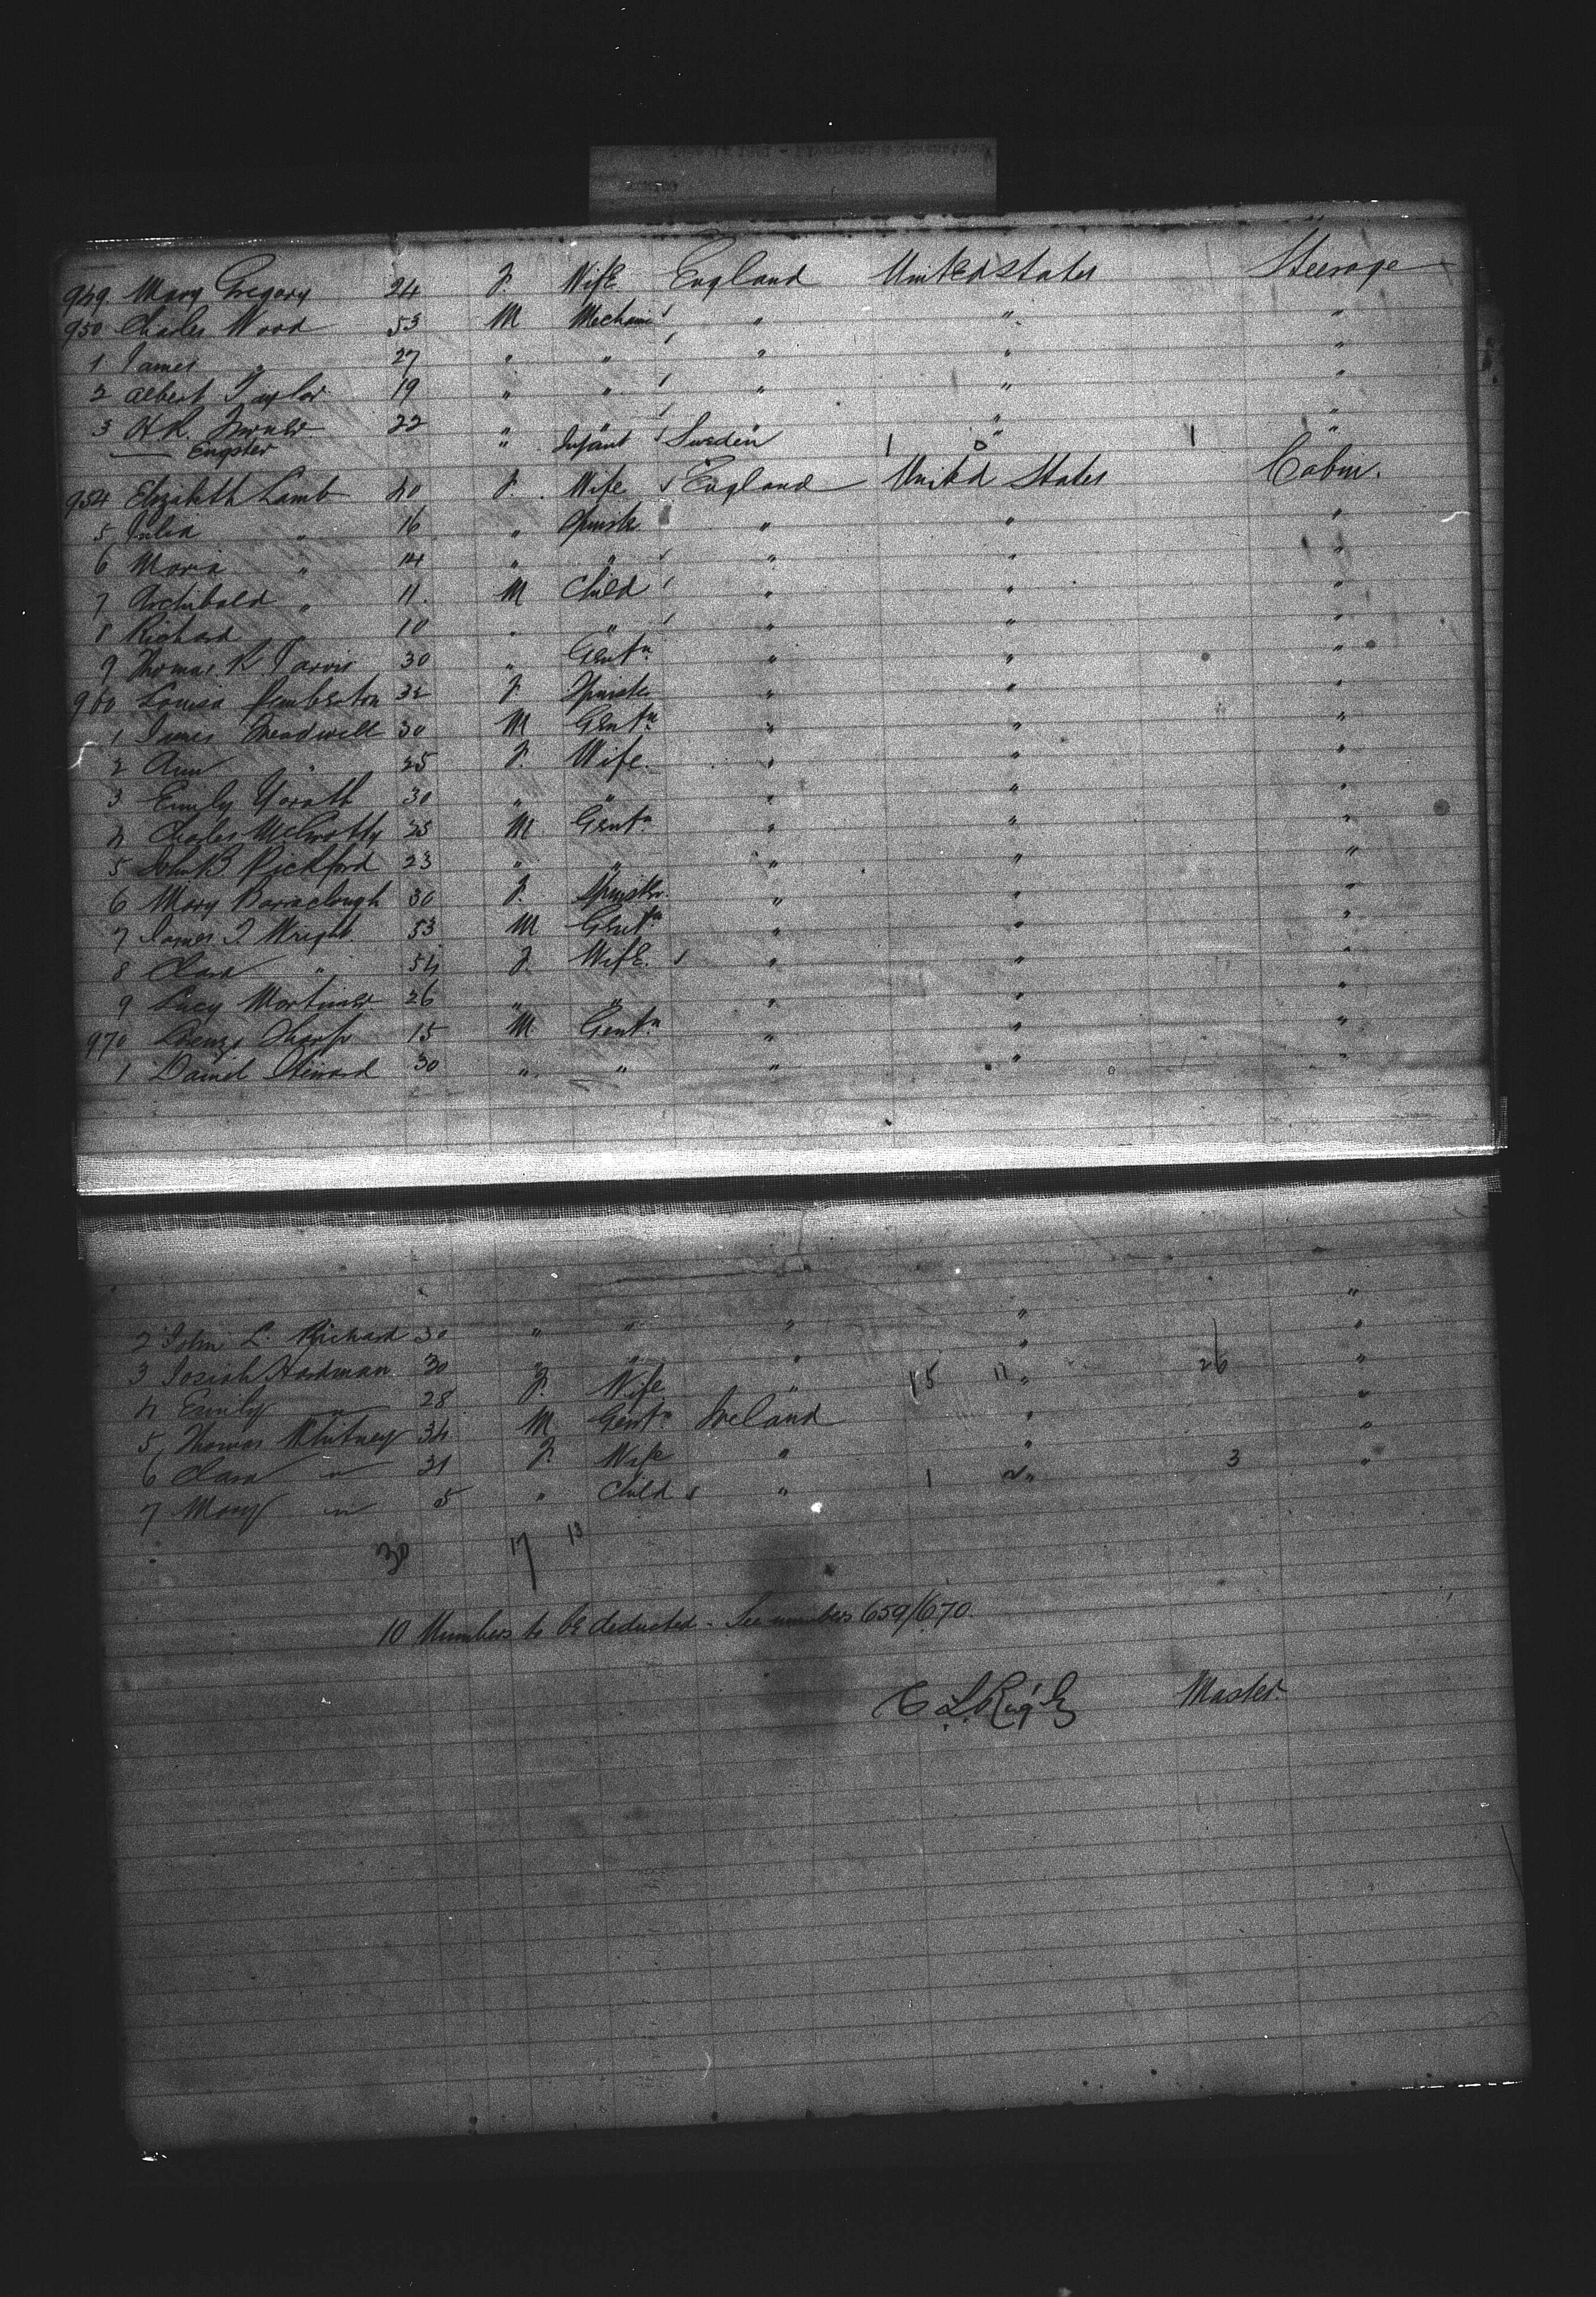 949 Mary Gregory 24 F. Wife England United States Steerage
950 Charles Wood 53 M Mechanic " " "
1 James " 27 " " " " "
2 Albert Taylor 19 " " " " "
3 H.R. Turner 22 " " " " "
—— Engster " Infant Sweden 1 0 1 "
954 Elizabeth Lamb 40 F. Wife England United States Cabin.
5 Julia " 16 " Spinster " " "
6 Maria " 14 " " " " "
7 Archibald " 11. M Child " " "
8 Richard " 10 " " " " "
9 Thomas R. Jarvis 30 " Gentn. " " "
960 Louisa Pemberton 32 F Spinster " " "
1 James Treadwell 30 M Gentn. " " "
2 Ann " 25 F. Wife. " " "
3 Emily Yorath 30 " " " " "
4 Charles 25 M. Gentn. " " "
5 John B. Pickford 23 " " " " "
6 Mary Barraclough 30 F. Spinster. " " "
7 James T Wright. 53 M Gentn " " "
8 Clara " 54 F. Wife. " " "
9 Lucy Mortimer 26 " " " " "
970 Lorenzo Sharp 15 M Gentn. " " "
1 Daniel Steward 30 " " " " "
2 John L. Richard 30 " " " " "
3 Josiah Hardman 30 " " " " "
4 Emily " 28. F. Wife " 15 11 " 26 "
5 Thomas Whitney 34 M Gentn Ireland " "
6 Clara " 31 F. Wife " " "
7 Mary " 5 " Child " 1 2 " 3 "
30 17 13
10 Numbers to be deducted - See numbers 659/670.
Master.